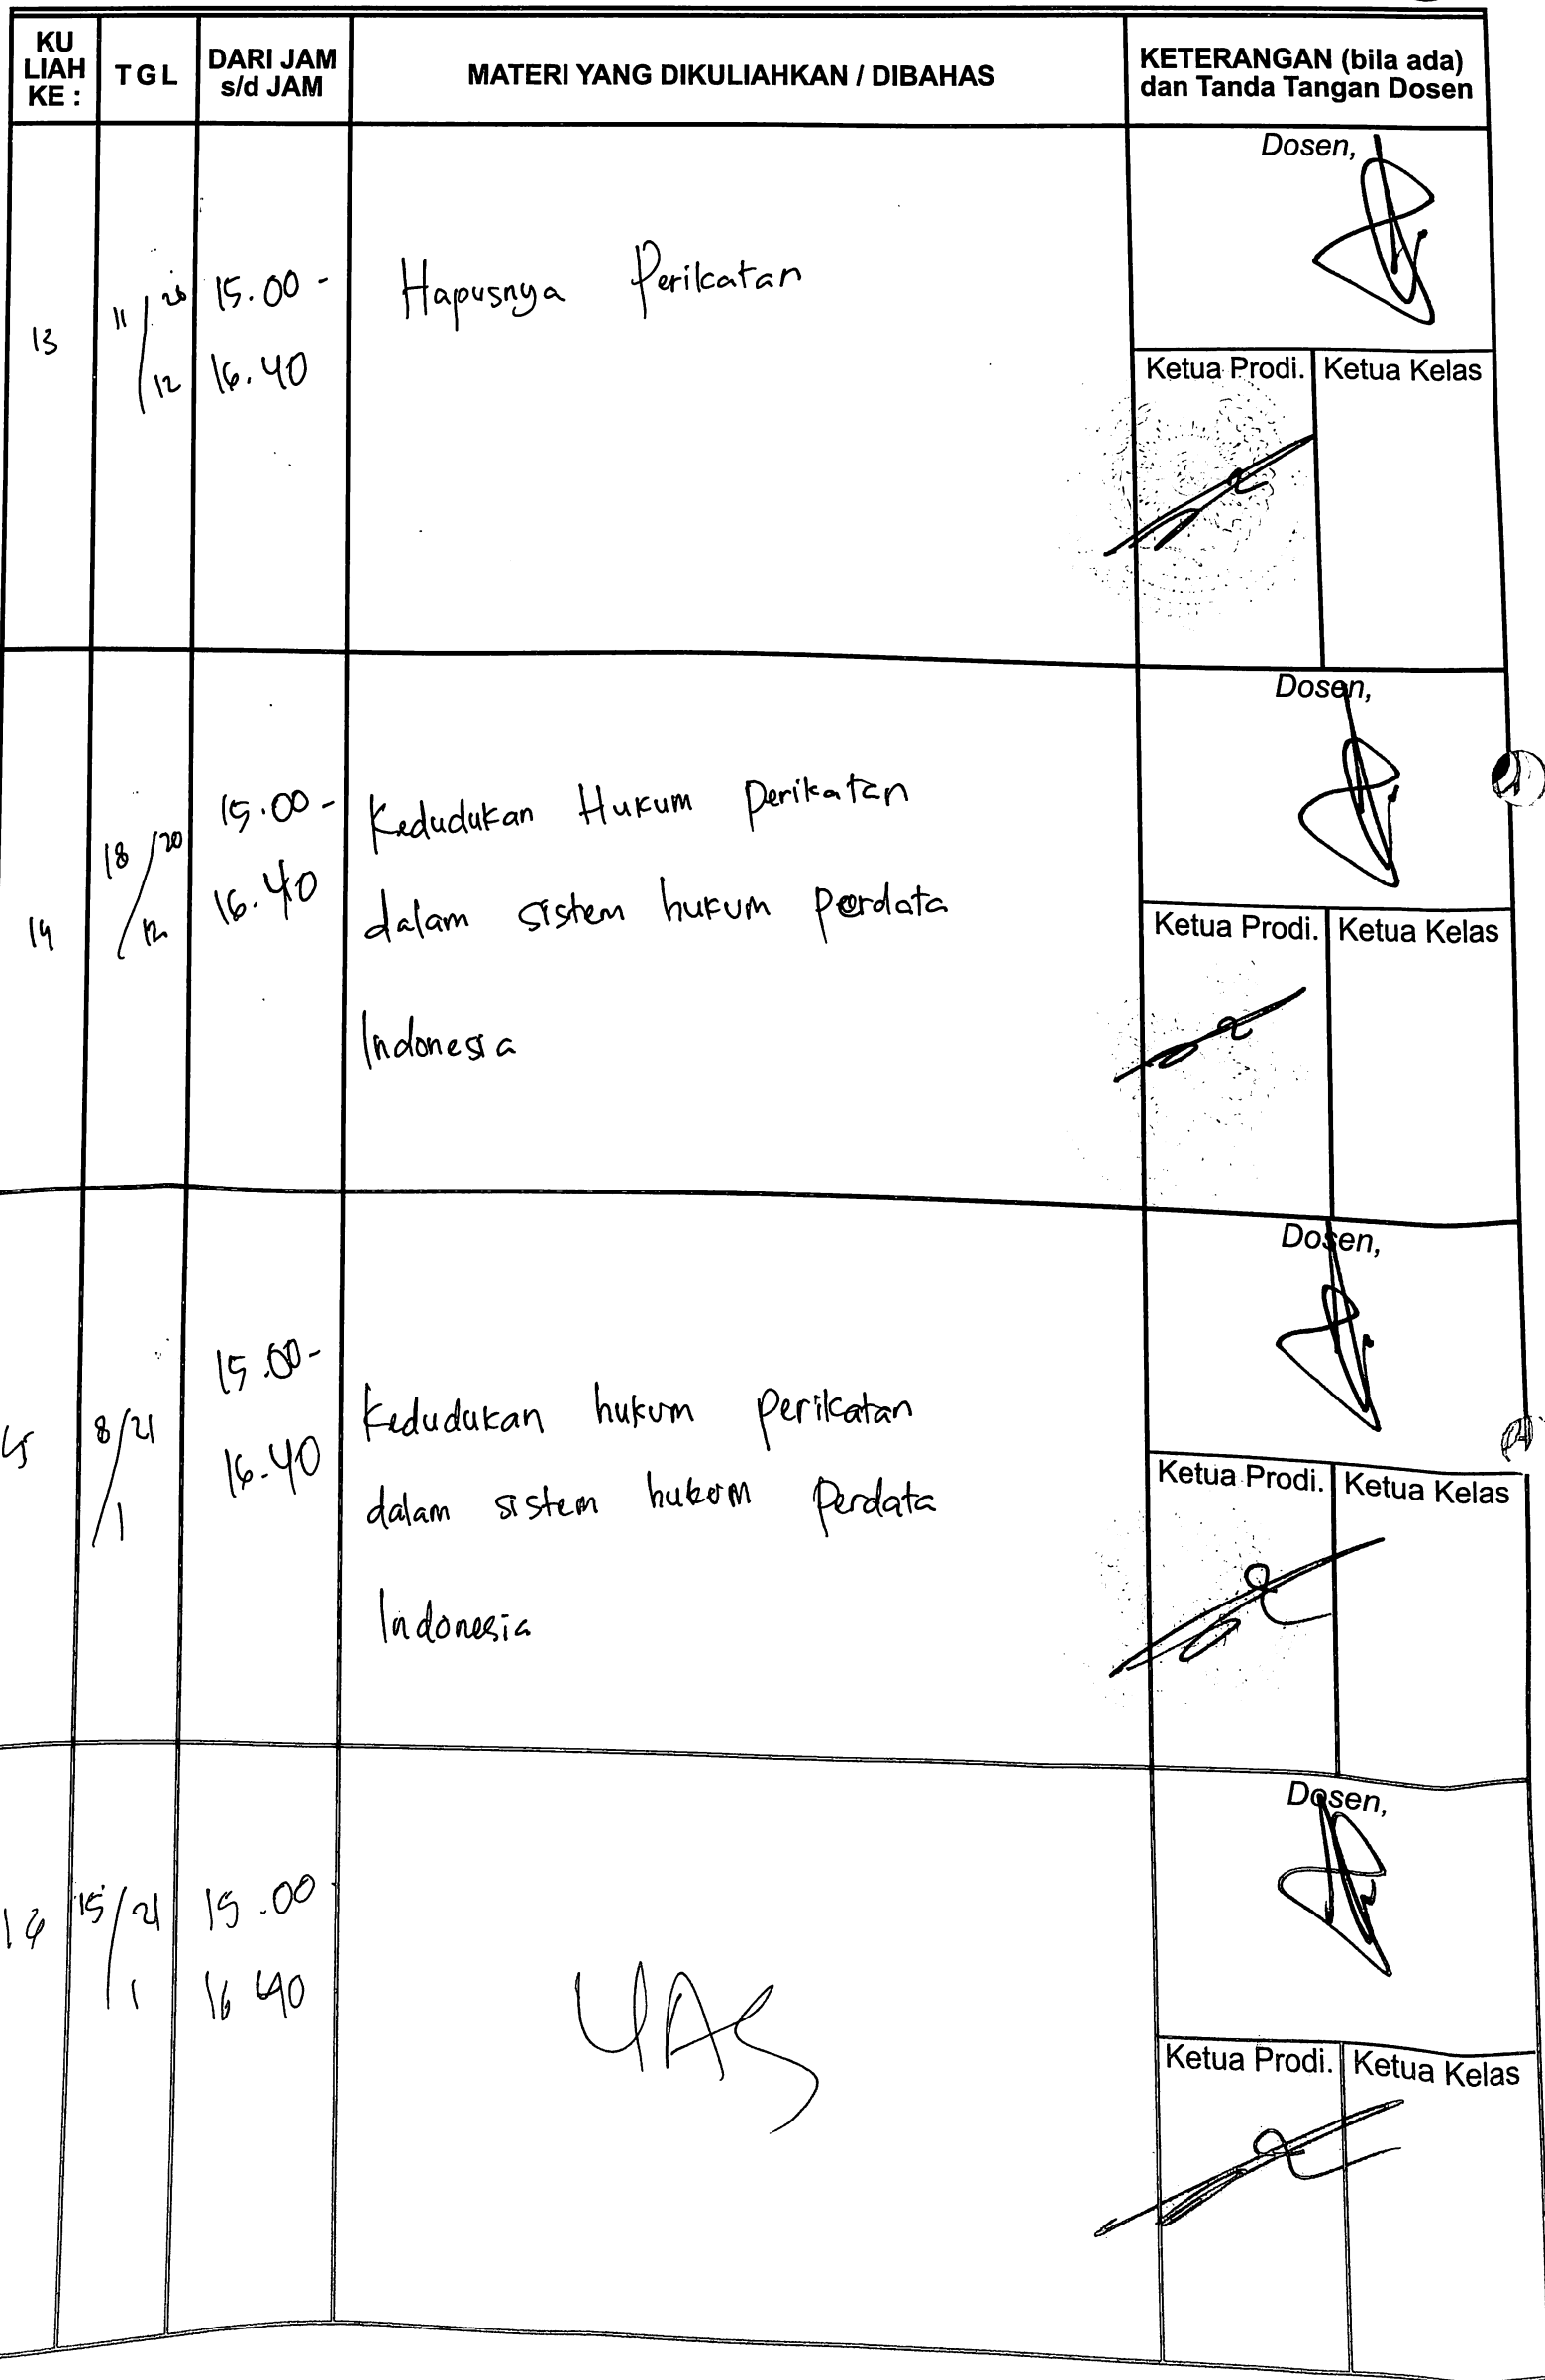 KU LIAH KE :
TGL
DARI JAM s/d JAM
MATERI YANG DIKULIAHKAN / DIBAHAS
KETERANGAN (bila ada) dan Tanda Tangan Dosen
13
11/12 20
15.00 -
16.40
Hapusnya Perikatan
Dosen,
Ketua Prodi.
Ketua Kelas
14
18/12 20
15.00 -
16.40
Kedudukan Hukum perikatan
dalam sistem hukum perdata
Indonesia
Dosen,
Ketua Prodi.
Ketua Kelas
15
8/1 21
15.00 -
16.40
Kedudukan hukum perikatan
dalam sistem hukum Perdata
Indonesia
Dosen,
Ketua Prodi.
Ketua Kelas
16
15/1 21
15.00
16 40
UAS
Dosen,
Ketua Prodi.
Ketua Kelas